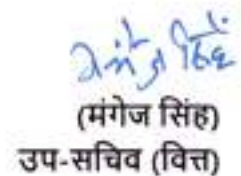 मंगेज सिंह
(मंगेज सिंह)
उप-सचिव (वित्त)